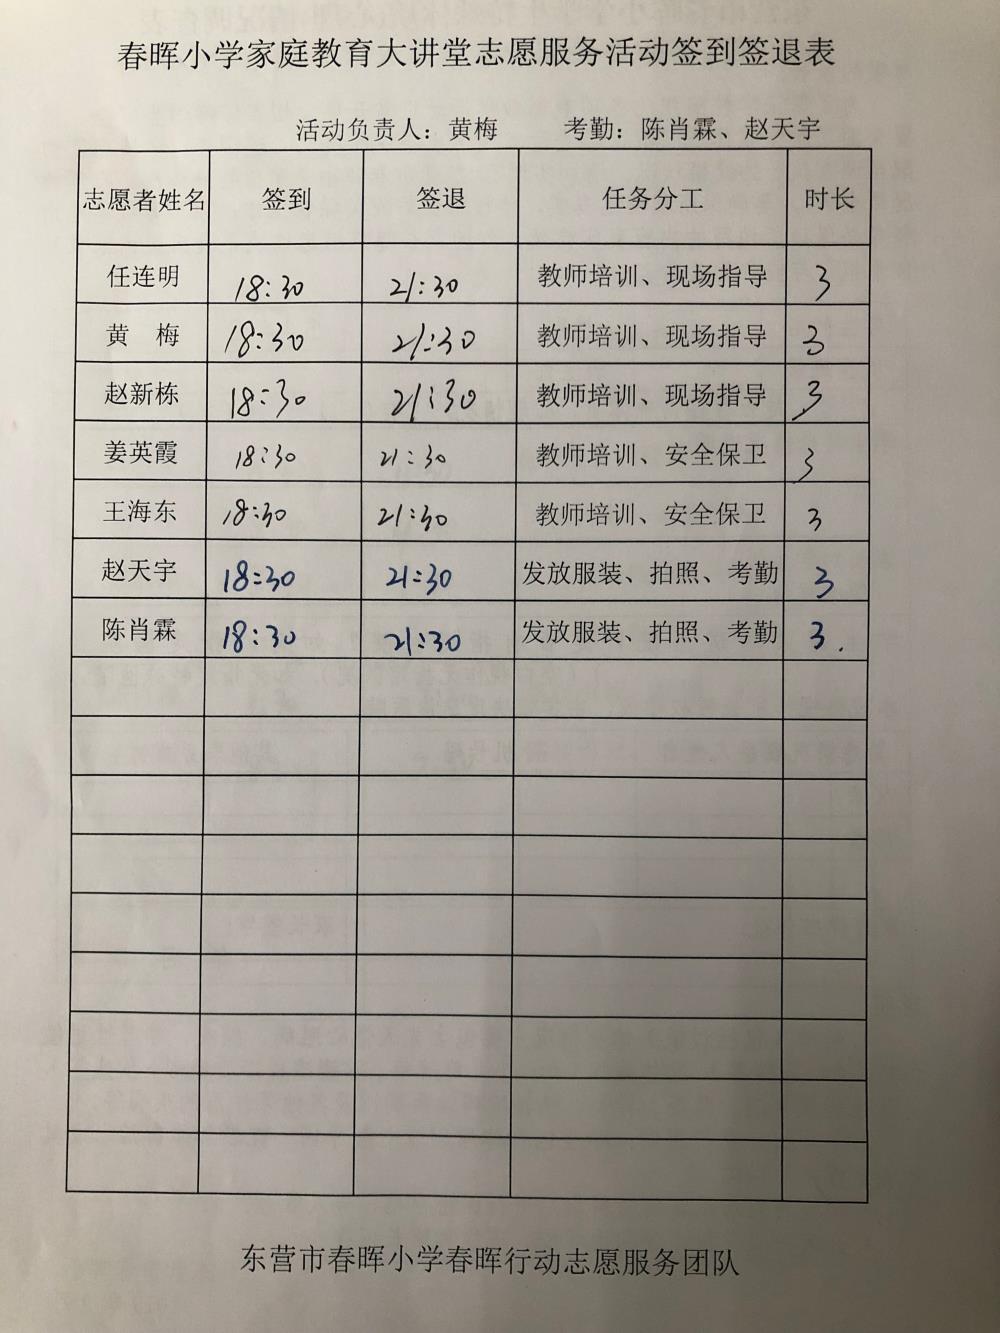 春晖小学家庭教育大讲堂志愿服务活动签到签退表
活动负责人：黄梅 考勤：陈肖霖、赵天宇
志愿者姓名 签到 签退 任务分工 时长
任连明 18:30 21:30 教师培训、现场指导 3
黄 梅 18:30 21:30 教师培训、现场指导 3
赵新栋 18:30 21:30 教师培训、现场指导 3
姜英霞 18:30 21:30 教师培训、安全保卫 3
王海东 18:30 21:30 教师培训、安全保卫 3
赵天宇 18:30 21:30 发放服装、拍照、考勤 3
陈肖霖 18:30 21:30 发放服装、拍照、考勤 3.
东营市春晖小学春晖行动志愿服务团队